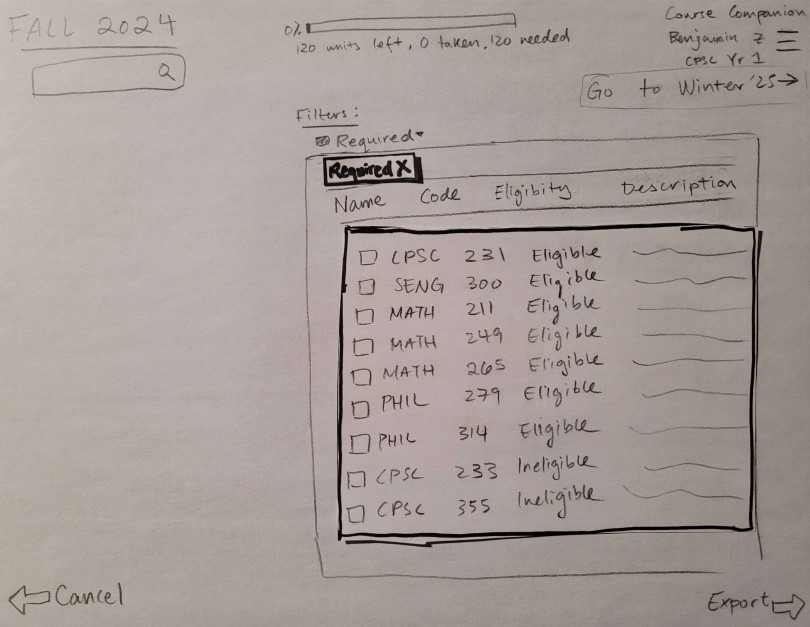 FALL 2024
0%
120 units left, 0 taken, 120 needed
Course Companion
Benjamin Z
CPSC Yr 1
Go to Winter '25
Filters:
Required
Required X
Name Code Eligibity Description
CPSC 231 Eligible
SENG 300 Eligible
MATH 211 Eligible
MATH 249 Eligible
MATH 265 Eligible
PHIL 279 Eligible
PHIL 314 Eligible
CPSC 233 Ineligible
CPSC 355 Ineligible
Cancel
Export